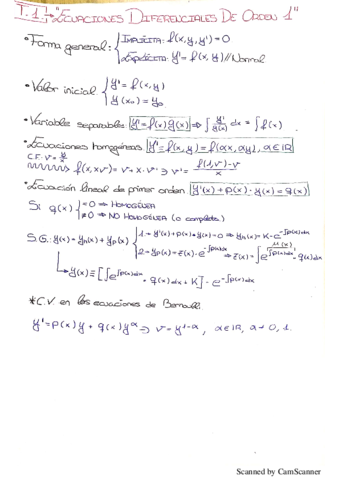 T.1 → "ECUACIONES DIFERENCIALES DE ORDEN 1"
• Forma general: { IMPLÍCITA: f(x, y, y') = 0
EXPLÍCITA: y' = f(x, y) // Normal
• Valor inicial { y' = f(x, y)
y(x₀) = y₀
• Variables separables: y' = f(x)g(x) ⇒ ∫ y'/g(x) dx = ∫ f(x)
• Ecuaciones homogéneas y' = f(x, y) = f(αx, αy), α ∈ ℝ
C.F: v = y/x
f(x, xv) = v + x · v' ⇒ v' = (f(1, v) - v)/x
• Ecuación lineal de primer orden y'(x) + p(x) · y(x) = q(x)
Si q(x) { = 0 ⇒ HOMOGÉNEA
≠ 0 ⇒ NO HOMOGÉNEA (o completa)
S.G.: y(x) = yₕ(x) + yₚ(x) { 1 → y'(x) + p(x) · y(x) = 0 ⇒ yₕ(x) = K · e^(-∫p(x)dx)
2 → yₚ(x) = z(x) · e^(-∫p(x)dx) ⇒ z(x) = ∫ e^(∫p(x)dx) · q(x)dx
μ(x)
↳ y(x) = [∫ e^(∫p(x)dx) · q(x)dx + K] · e^(-∫p(x)dx)
* C.V. en las ecuaciones de Bernoulli
y' = p(x)y + q(x)y^α ⇒ v = y^(1-α), α ∈ ℝ, α ≠ 0, 1.
Scanned by CamScanner